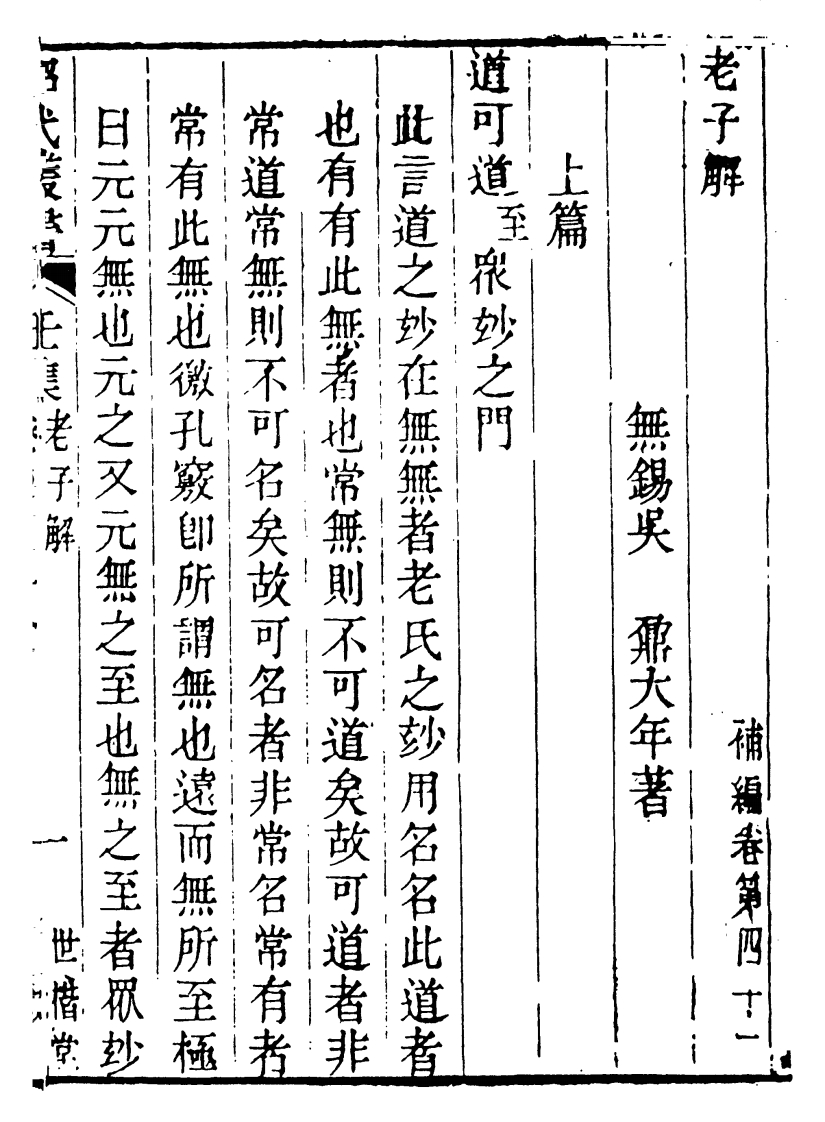 老子解
補編卷第四十一
無錫吳　鼐大年著
上篇
道可道至眾妙之門
此言道之玅在無無者老氏之玅用名名此道者
也有有此無者也常無則不可道矣故可道者非
常道常無則不可名矣故可名者非常名常有者
常有此無也徼孔竅卽所謂無也遠而無所至極
曰元元無也元之又元無之至也無之至者眾玅
代叢書 集 老子解 一 世楷堂